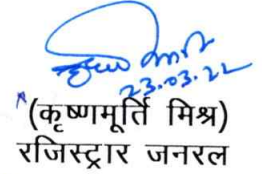 23.03.22
(कृष्णमूर्ति मिश्र)
रजिस्ट्रार जनरल